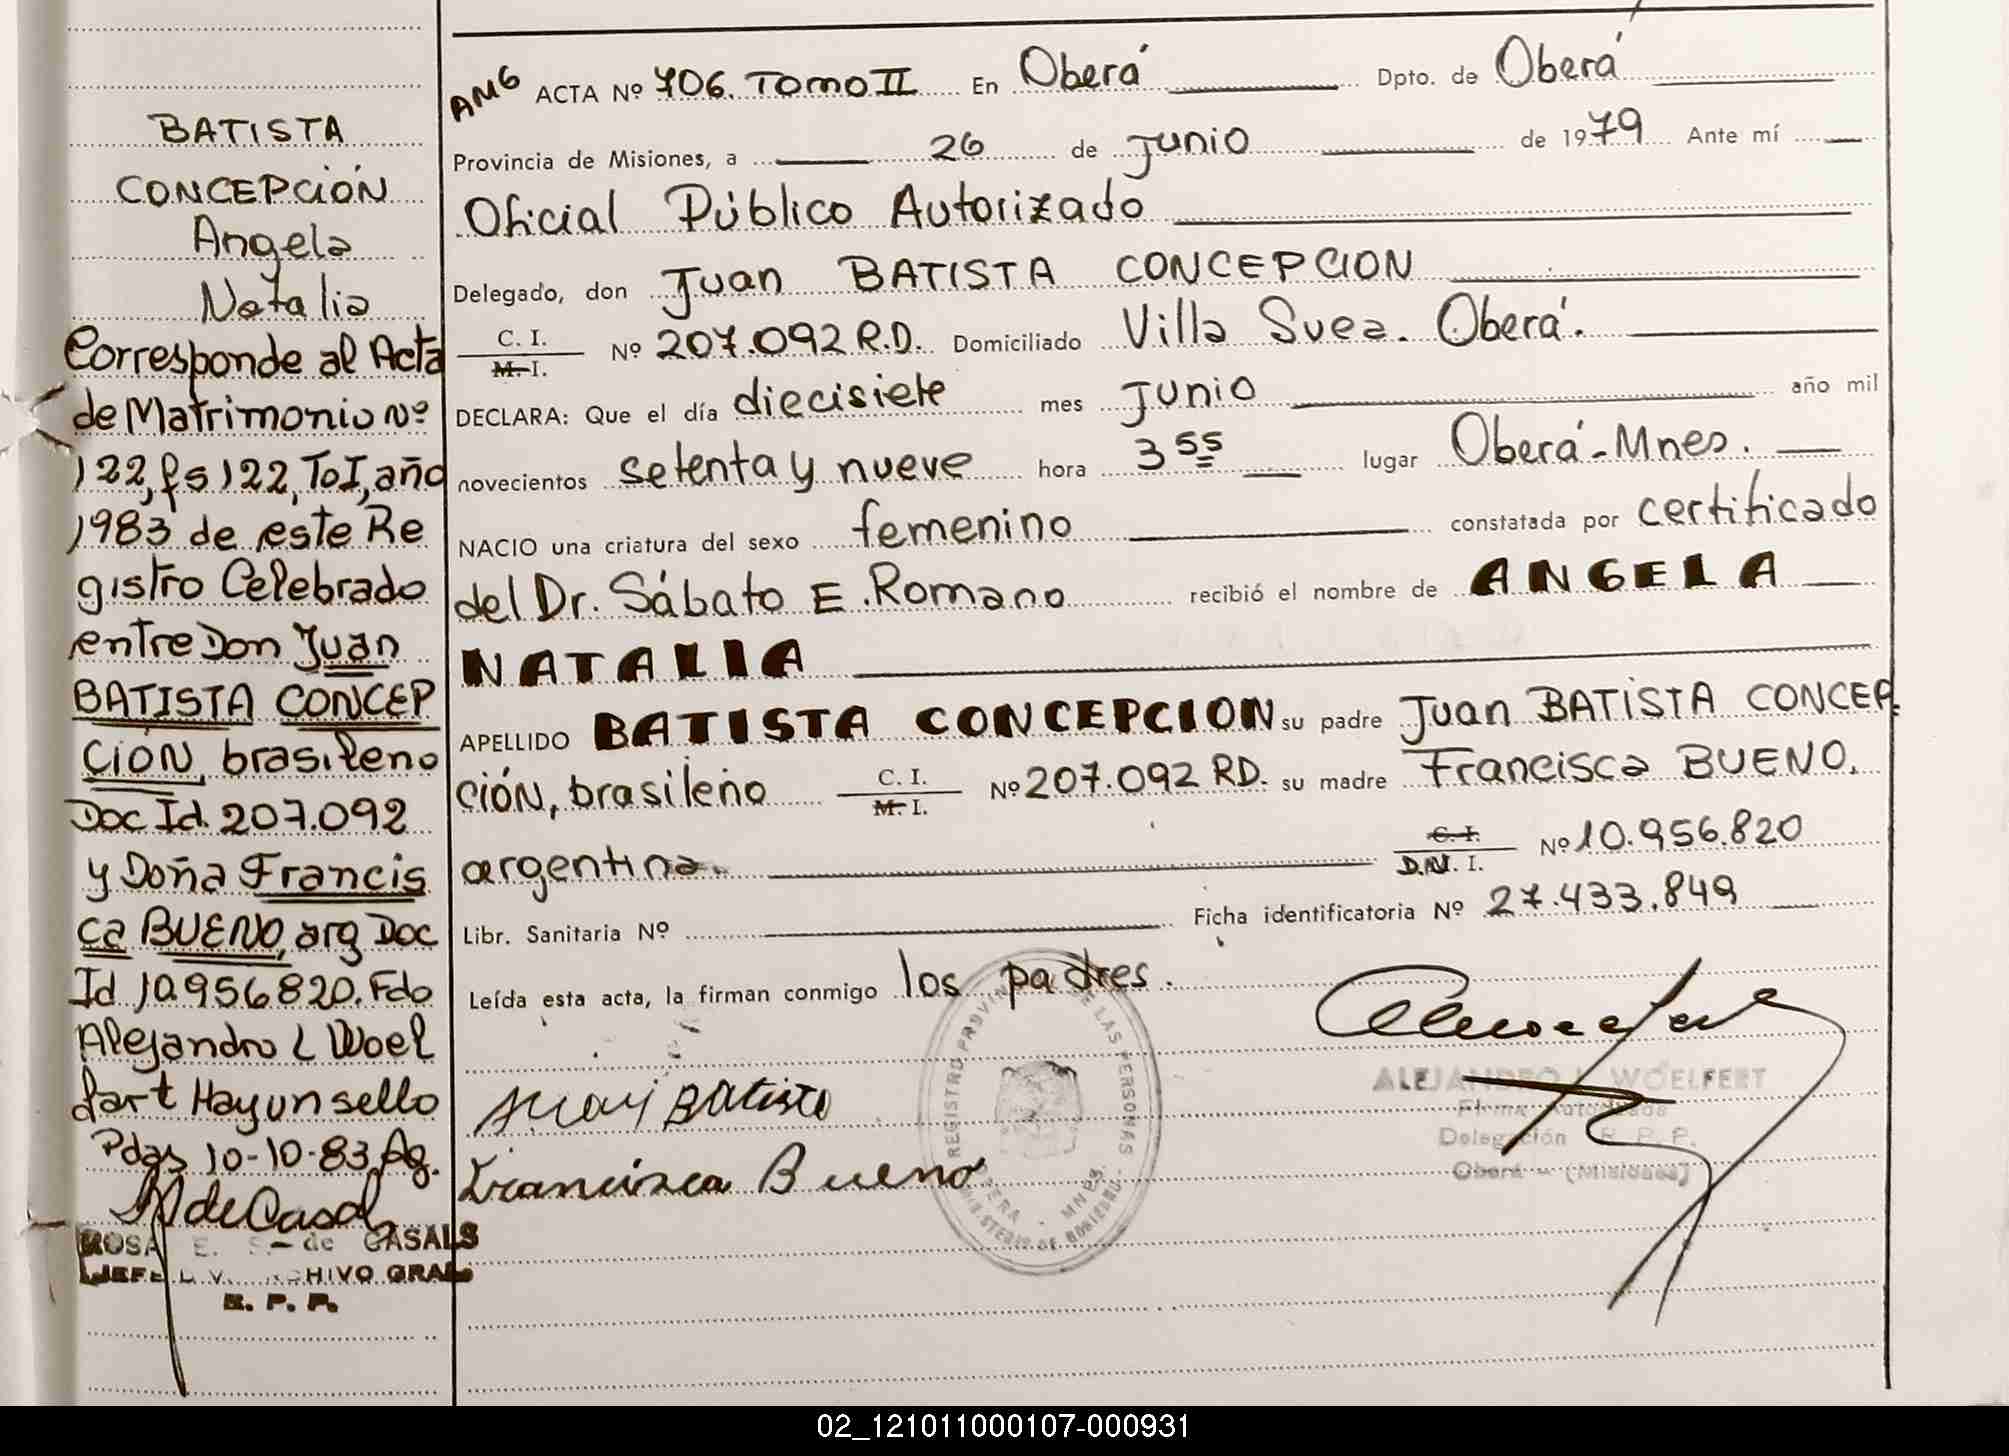 BATISTA
CONCEPCIÓN
Angela
Natalia
Corresponde al Acta
de Matrimonio Nº
122, fs 122, ToI, año
1983 de este Re
gistro Celebrado
entre Don Juan
BATISTA CONCEP
CIÓN, brasileno
Doc Id. 207.092
y Doña Francis
ca BUENO, arg Doc
Id 10.956820. Fdo
Alejandro L Woel
fart Hay un sello
Pdas 10-10-83. Ag.
ROSA E. S. de CASALS
JEFE DIV. ARCHIVO GRAL
R. P. P.
AMG ACTA Nº 706. Tomo II En Oberá Dpto. de Oberá
Provincia de Misiones, a 26 de Junio de 1979 Ante mí
Oficial Público Autorizado
Delegado, don Juan BATISTA CONCEPCION
C. I.
M. I. Nº 207.092 R.D. Domiciliado Villa Svea. Oberá.
DECLARA: Que el día diecisiete mes Junio año mil
novecientos setenta y nueve hora 3 55 lugar Oberá-Mnes.
NACIO una criatura del sexo femenino constatada por certificado
del Dr. Sábato E. Romano recibió el nombre de ANGELA
NATALIA
APELLIDO BATISTA CONCEPCION su padre Juan BATISTA CONCEP
CIÓN, brasileño C. I. M. I. Nº 207.092 RD. su madre Francisca BUENO,
argentina. C. I. D.N. I. Nº 10.956.820
Libr. Sanitaria Nº Ficha identificatoria Nº 27.433.849
Leída esta acta, la firman conmigo los padres.
Batista
Francisca Bueno
REGISTRO PROVINCIAL DE LAS PERSONAS
OBERA - MNES.
MINISTERIO DE GOBIERNO
ALEJANDRO L. WOELFERT
Firma Autorizada
Delegación R. P. P.
Oberá - (Misiones)
02_121011000107-000931